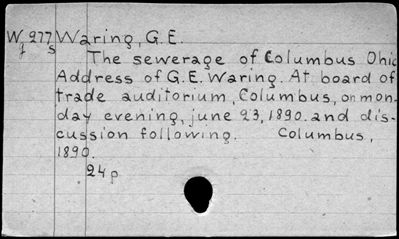 Wf 277s Waring, G.E.
The sewerage of Columbus Ohio
Address of G.E. Waring. At board of
trade auditorium, Columbus, on mon-
day evening, june 23, 1890. and dis-
cussion following. Columbus,
1890.
24p